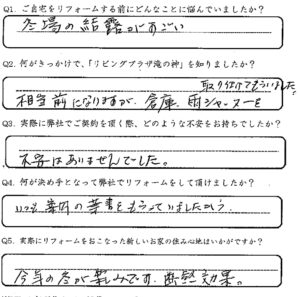 Q1. ご自宅をリフォームする前にどんなことに悩んでいましたか？
冬場の結露がすごい
Q2. 何がきっかけで、「リビングプラザ滝の神」を知りましたか？
取り付けてもらいました。
相当前になりますが、倉庫、雨シャッターを
Q3. 実際に弊社でご契約を頂く際、どのような不安をお持ちでしたか？
不安はありませんでした。
Q4. 何が決め手となって弊社でリフォームをして頂けましたか？
いつも
をもらっていましたから。
Q5. 実際にリフォームをおこなった新しいお家の住み心地はいかがですか？
今年の冬が楽しみです。断熱効果。